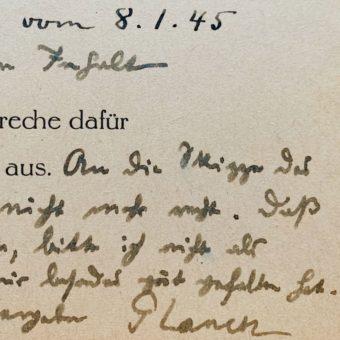 vom 8.1.45
Inhalt
reche dafür
aus. An die Skizze des
nicht mehr recht. Daß
, bitte ich nicht als
mir besonders gut gefallen hat.
Planck